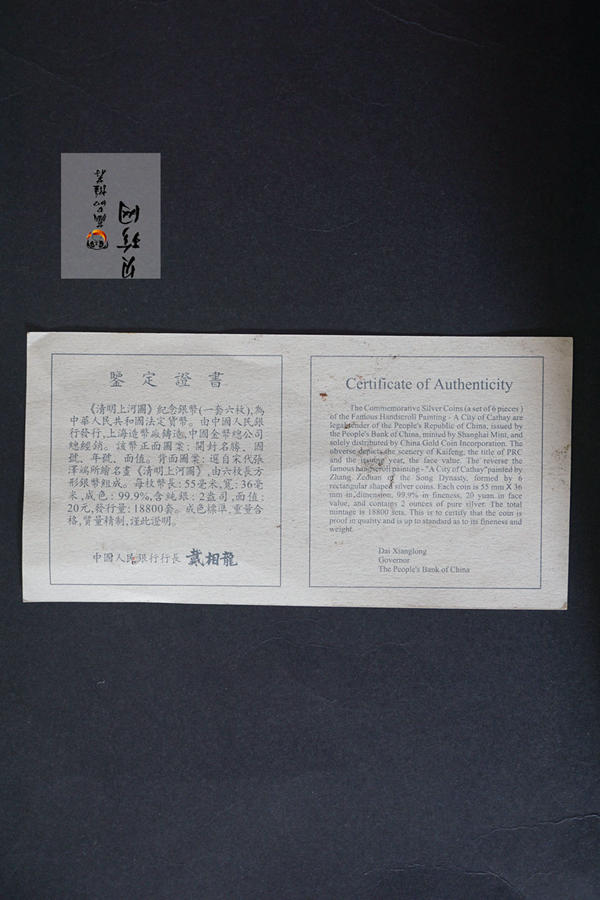 贝珍网
藏品推荐
鑒定證書
《清明上河圖》紀念銀幣(一套六枚),為
中華人民共和國法定貨幣。由中國人民銀
行發行,上海造幣廠鑄造,中國金幣總公司
總經銷。該幣正面圖案:開封名勝、國
號、年號、面值。背面圖案:選自宋代張
澤端所繪名畫《清明上河圖》,由六枚長方
形銀幣組成。每枚幣長:55毫米,寬:36毫
米,成色:99.9%,含純銀:2盎司,面值:
20元,發行量:18800套。成色標準,重量合
格,質量精制,謹此證明。
中國人民銀行行長 戴相龍
Certificate of Authenticity
The Commemorative Silver Coins (a set of 6 pieces)
of the Famous Handscroll Painting - A City of Cathay are
legal tender of the People's Republic of China, issued by
the People's Bank of China, minted by Shanghai Mint, and
solely distributed by China Gold Coin Incorporation. The
obverse depicts the scenery of Kaifeng, the title of PRC
and the issuing year, the face value. The reverse the
famous handscroll painting - "A City of Cathay" painted by
Zhang Zeduan of the Song Dynasty, formed by 6
rectangular shaped silver coins. Each coin is 55 mm X 36
mm in dimension, 99.9% in fineness, 20 yuan in face
value, and contains 2 ounces of pure silver. The total
mintage is 18800 sets. This is to certify that the coin is
proof in quality and is up to standard as to its fineness and
weight.
Dai Xianglong
Governor
The People's Bank of China